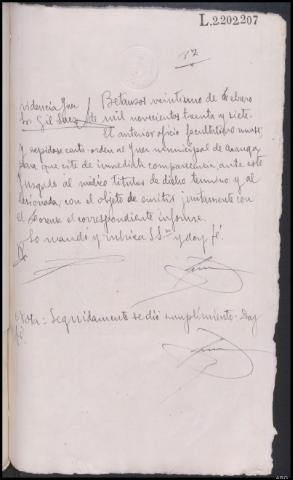 L.2202207
37
Providencia Juez Betanzos veintiuno de Febrero
Sr. Gil Saez de mil novecientos treinta y siete.
El anterior oficio facultativo unase,
y expidase carta-orden al Juez municipal de Aranga,
para que cite de inmediata comparecencia ante este
Juzgado al médico titular de dicho termino y al
lesionado, con el objeto de emitir juntamente con
el Forense el correspondiente informe.
Lo mandó y rubrica S.Sª y doy fé.
Nota: Seguidamente se dió cumplimiento. Doy
fé.